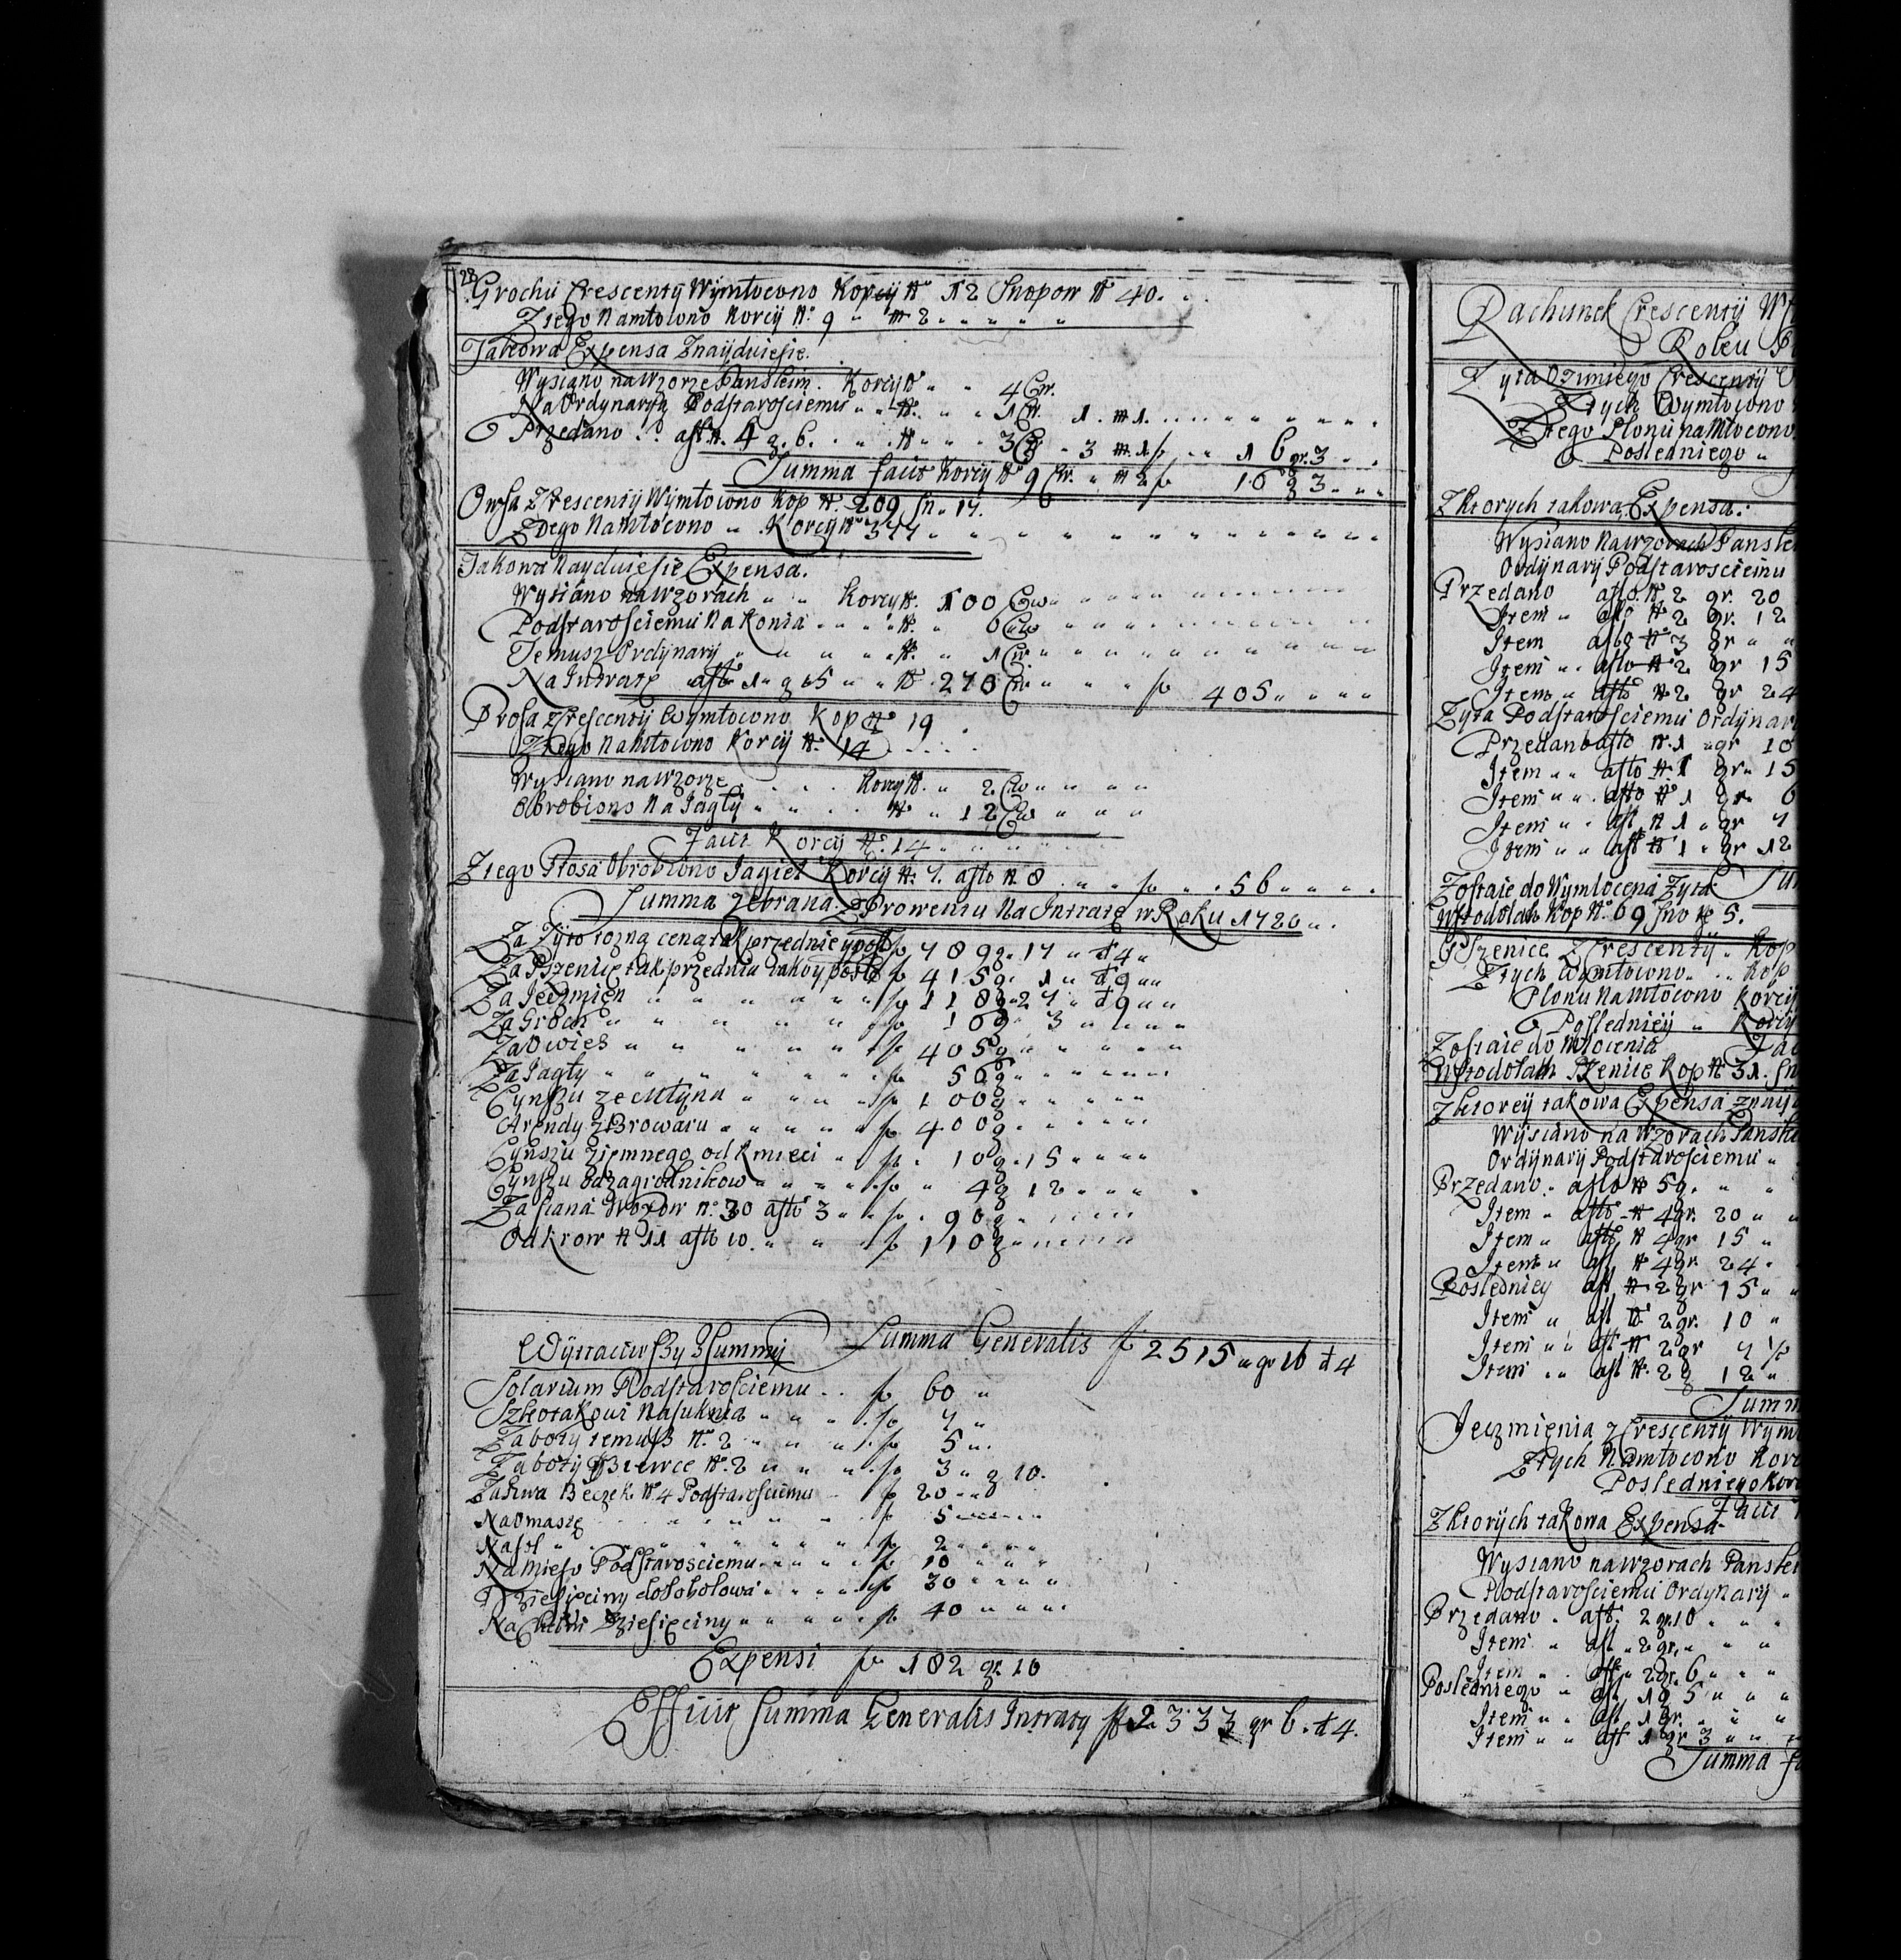 28
Grochu Crescentÿ Wÿmłocono Korcÿ No 12 Snopow No 40.
Ztego Namłocono Korcÿ No. 9
Takowa Expensa Znaÿduiesie.
Wysiano na Wzorze Panskim. Korcÿ No 4 Cw.
Na Ordynaryą Podstarosciemu No. 1 Cw. 1.
Przedano 4 g. 6. 3 Cw 3 fp 16 gr. 3
Summa facit Korcÿ No 9 Cw. fp 16 g 3
Owsa z Crescentÿ Wÿmłocono Kop No. 209 Sn. 17.
Ztego Namłocono Korcÿ No 377
Takowa Nayduiesie Expensa.
Wysiano na Wzorach Korcÿ No. 100 Cw
Podstarosciemu Na Konia No. 6 Cw
Temusz Ordÿnarÿ No. 1 Cw
Na Intratę asto 1 g 15 No 270 Cw fp 405
Prosa z Crescentÿ Wymłocono Kop No 19
Ztego Namłocono Korcÿ No. 14
Wysiano na Wzorze Korcÿ No. 2 Cw
Obrobiono Na Jagłÿ No 12 Cw
Facit Korcÿ No. 14
Ztego Prosa Obrobiono Jagieł Korcÿ No. 7. asto No 8 fp 56
Summa zebrana z Prowentu Na Intratę w Roku 1720
Za Zÿto rozną ceną tak przednie ÿ posl fp 789 g. 17 d 4
Za Pszenicę tak przednią iako ÿ posle fp 415 g. 1 d 9
Za Jęczmięn fp 118 g 27 d 9
Za Groch fp 16 g 3
Za Owies fp 405 g
Za Jagły fp 56 g
Cynszu ze Młÿna fp 100 g
Arendy z Browaru fp 400 g
Cÿnszu Ziemnego od Kmieci fp 10 g. 15
Cÿnszu od Zagrodnikow fp 4 g 12
Za siana Wozow No. 30 asto 3 fp 90 g
Od Krow No 11 asto 10. fp 110 g
Summa Generalis fp 2515 gr 16 d 4
Wÿtraciwszy z Summÿ
Solarium Podstarosciemu fp 60
Szkotakowi Na suknią fp 7
Za botÿ temusz No. 2 fp 5
Za botÿ Dziewce No. 2 fp 3 g 10.
Za piwa Beczek No 4 Podstarosciemu fp 20
Na Omastę fp 5
Na sol fp 2
Na Mięso Podstarosciemu fp 10
Dziesięciny do Sokolowa fp 30
Na Dziesięciny fp 40
Expensi fp 182 gr 10
Efficit Summa Generalis Intraty fp 2333 gr 6 d 4.
Rachunek Crescentÿ
Roku
Zyta Ozimiego Crescentÿ
Ztych Wymłocono
Ztego Plonu Namłocono
Posledniego
Zktorych takowa Expensa.
Wysiano Na Wzorach
Ordÿnarÿ Podstarosciemu
Przedano asto No 2 gr. 20
Item asto No 2 gr. 12
Item asto No 3 gr
Item asto No 2 gr 15
Item asto No 2 gr 24
Zyta Podstarosciemu
Przedano asto No. 1 gr 18
Item asto No 1 gr 15
Item asto No 1 gr 6
Item ast No 1 gr 7
Item ast No 1 gr 12
Zostaie do Wymłocena Zyta
Wstodołach Kop No. 69 Sno No 5.
Pszenice z Crescentÿ Kop
Ztych Wymłocono Kop
Plonu Namłocono Korcÿ
Posledniey Korcÿ
Zostaie do Młocenia
Wstodołach Pszenice Kop No 31.
Zktoreÿ takowa Expensa
Wysiano na Wzorach
Ordÿnarÿ Podstarosciemu
Przedano asto No 5 g.
Item asto No 4 gr. 20
Item asto No 4 gr 15
Item ast No 4 gr 24
Posledniey ast No 2 gr 15
Item ast No 2 gr. 10
Item ast No 2 gr 7 ½
Item ast No. 2 g 12
Jęczmienia z Crescentÿ
Ztych Namłocono
Posledniego
Facit
Zktorÿch takowa Expensa
Wysiano na Wzorach
Podstarosciemu Ordÿnarÿ
Przedano ast. 2 gr. 10
Item ast 2 gr.
Item ast 2 gr. 6
Posledniego ast 1 g 5
Item ast 1 gr.
Item ast 1 gr 3
Summa